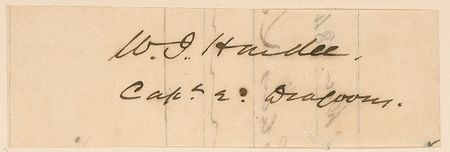 W. J. Hardee.
Capt. 2d Dragoons.